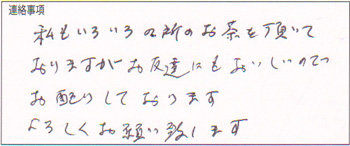 連絡事項
私もいろいろの所のお茶を頂いて
おりますがお友達にもおいしいので
お配りしております
よろしくお願い致します